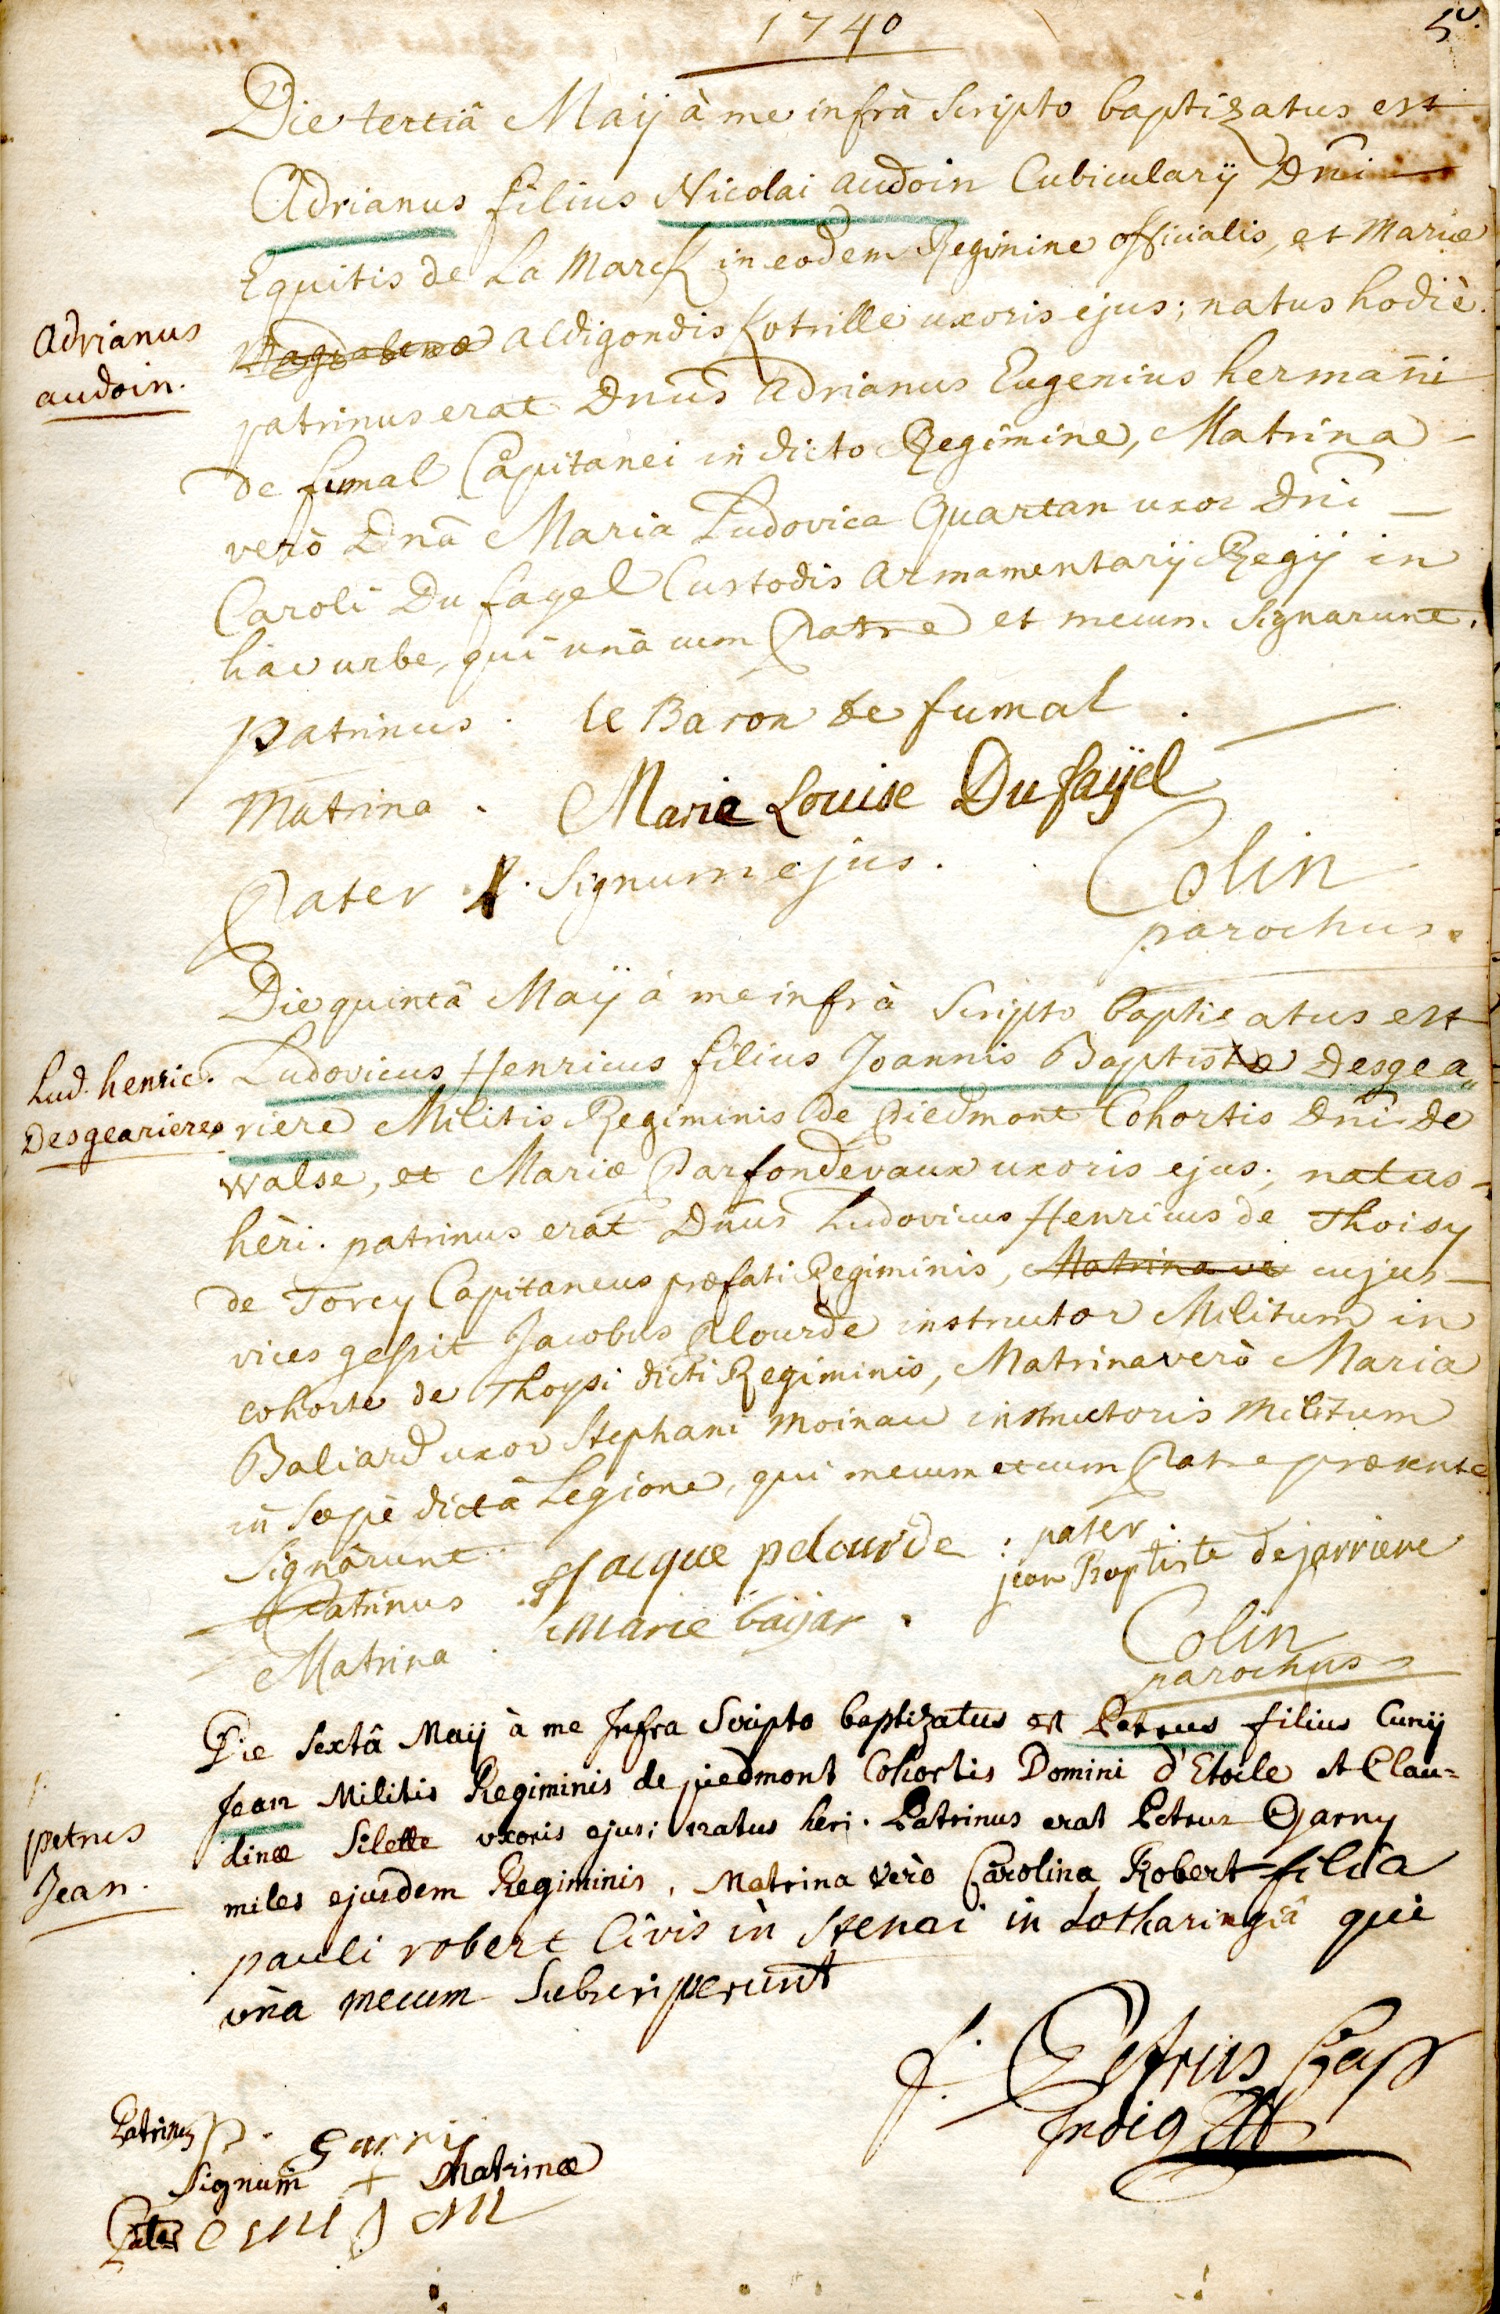 1740
5v.
Die tertiâ Maij à me infrà scripto baptizatus est
Adrianus filius Nicolai audoin Cubicularij Dñi
Equitis de La Marck in eodem Regimine officialis, et Mariæ
Adrianus
audoin.
Magdalenæ aldigondis Kotrille uxoris ejus; natus hodiè.
patrinus erat Dnus Adrianus Eugenius hermañi
de fumal Capitanei in dicto Regimine, Matrina
verò Dnã Maria Ludovica Quartan uxor Dñi
Caroli Du fayel Custodis armamentarij Regij in
hâc urbe, qui unà cum Patre et mecum signarunt.
Patrinus . le Baron de fumal .
Matrina . Marie Louise Dufaÿel
Pater . signum ejus .
Colin
parochus.
Die quintâ Maij à me infrà scripto baptizatus est
Lud. henric.
Desgearieres
Ludovicus Henricus filius Joannis Baptistæ Desgea„
riere Militis Regiminis de Piedmont Cohortis Dñi de
walse, et Mariæ Parfondevaux uxoris ejus; natus
hèri. patrinus erat Dnus Ludovicus Henricus de Thoisy
de Torcy Capitaneus præfati Regiminis, Matrina ve cujus
vices gessit Jacobus Plourde instructor Militum in
cohorte de Thoysi dicti Regiminis, Matrina verò Maria
Baliard uxor Stephani Moinau instructoris Militum
in sæpè dictâ Legione, qui mecum et cum Patre præsente
signârunt
Patrinus . Jacque pelourde : pater.
jean Baptiste dejarriere
Matrina . Marie baijar .
Colin
parochus
Die sextâ Maij à me Infra Scripto baptizatus est Petrus filius Cunij
Jean Militis Regiminis de piedmont Cohortis Domini d'Etoile et Clau=
petrus
Jean.
dinæ Silette uxoris ejus; natus heri. Patrinus erat Petrus Garny
miles ejusdem Regiminis, Matrina verò Carolina Robert filia
pauli robert Civis in Stenai in Lotharingiâ qui
unà mecum Subscripserunt
f. Petrus
Patrinus P. garni
signum + Matrinæ
Pater